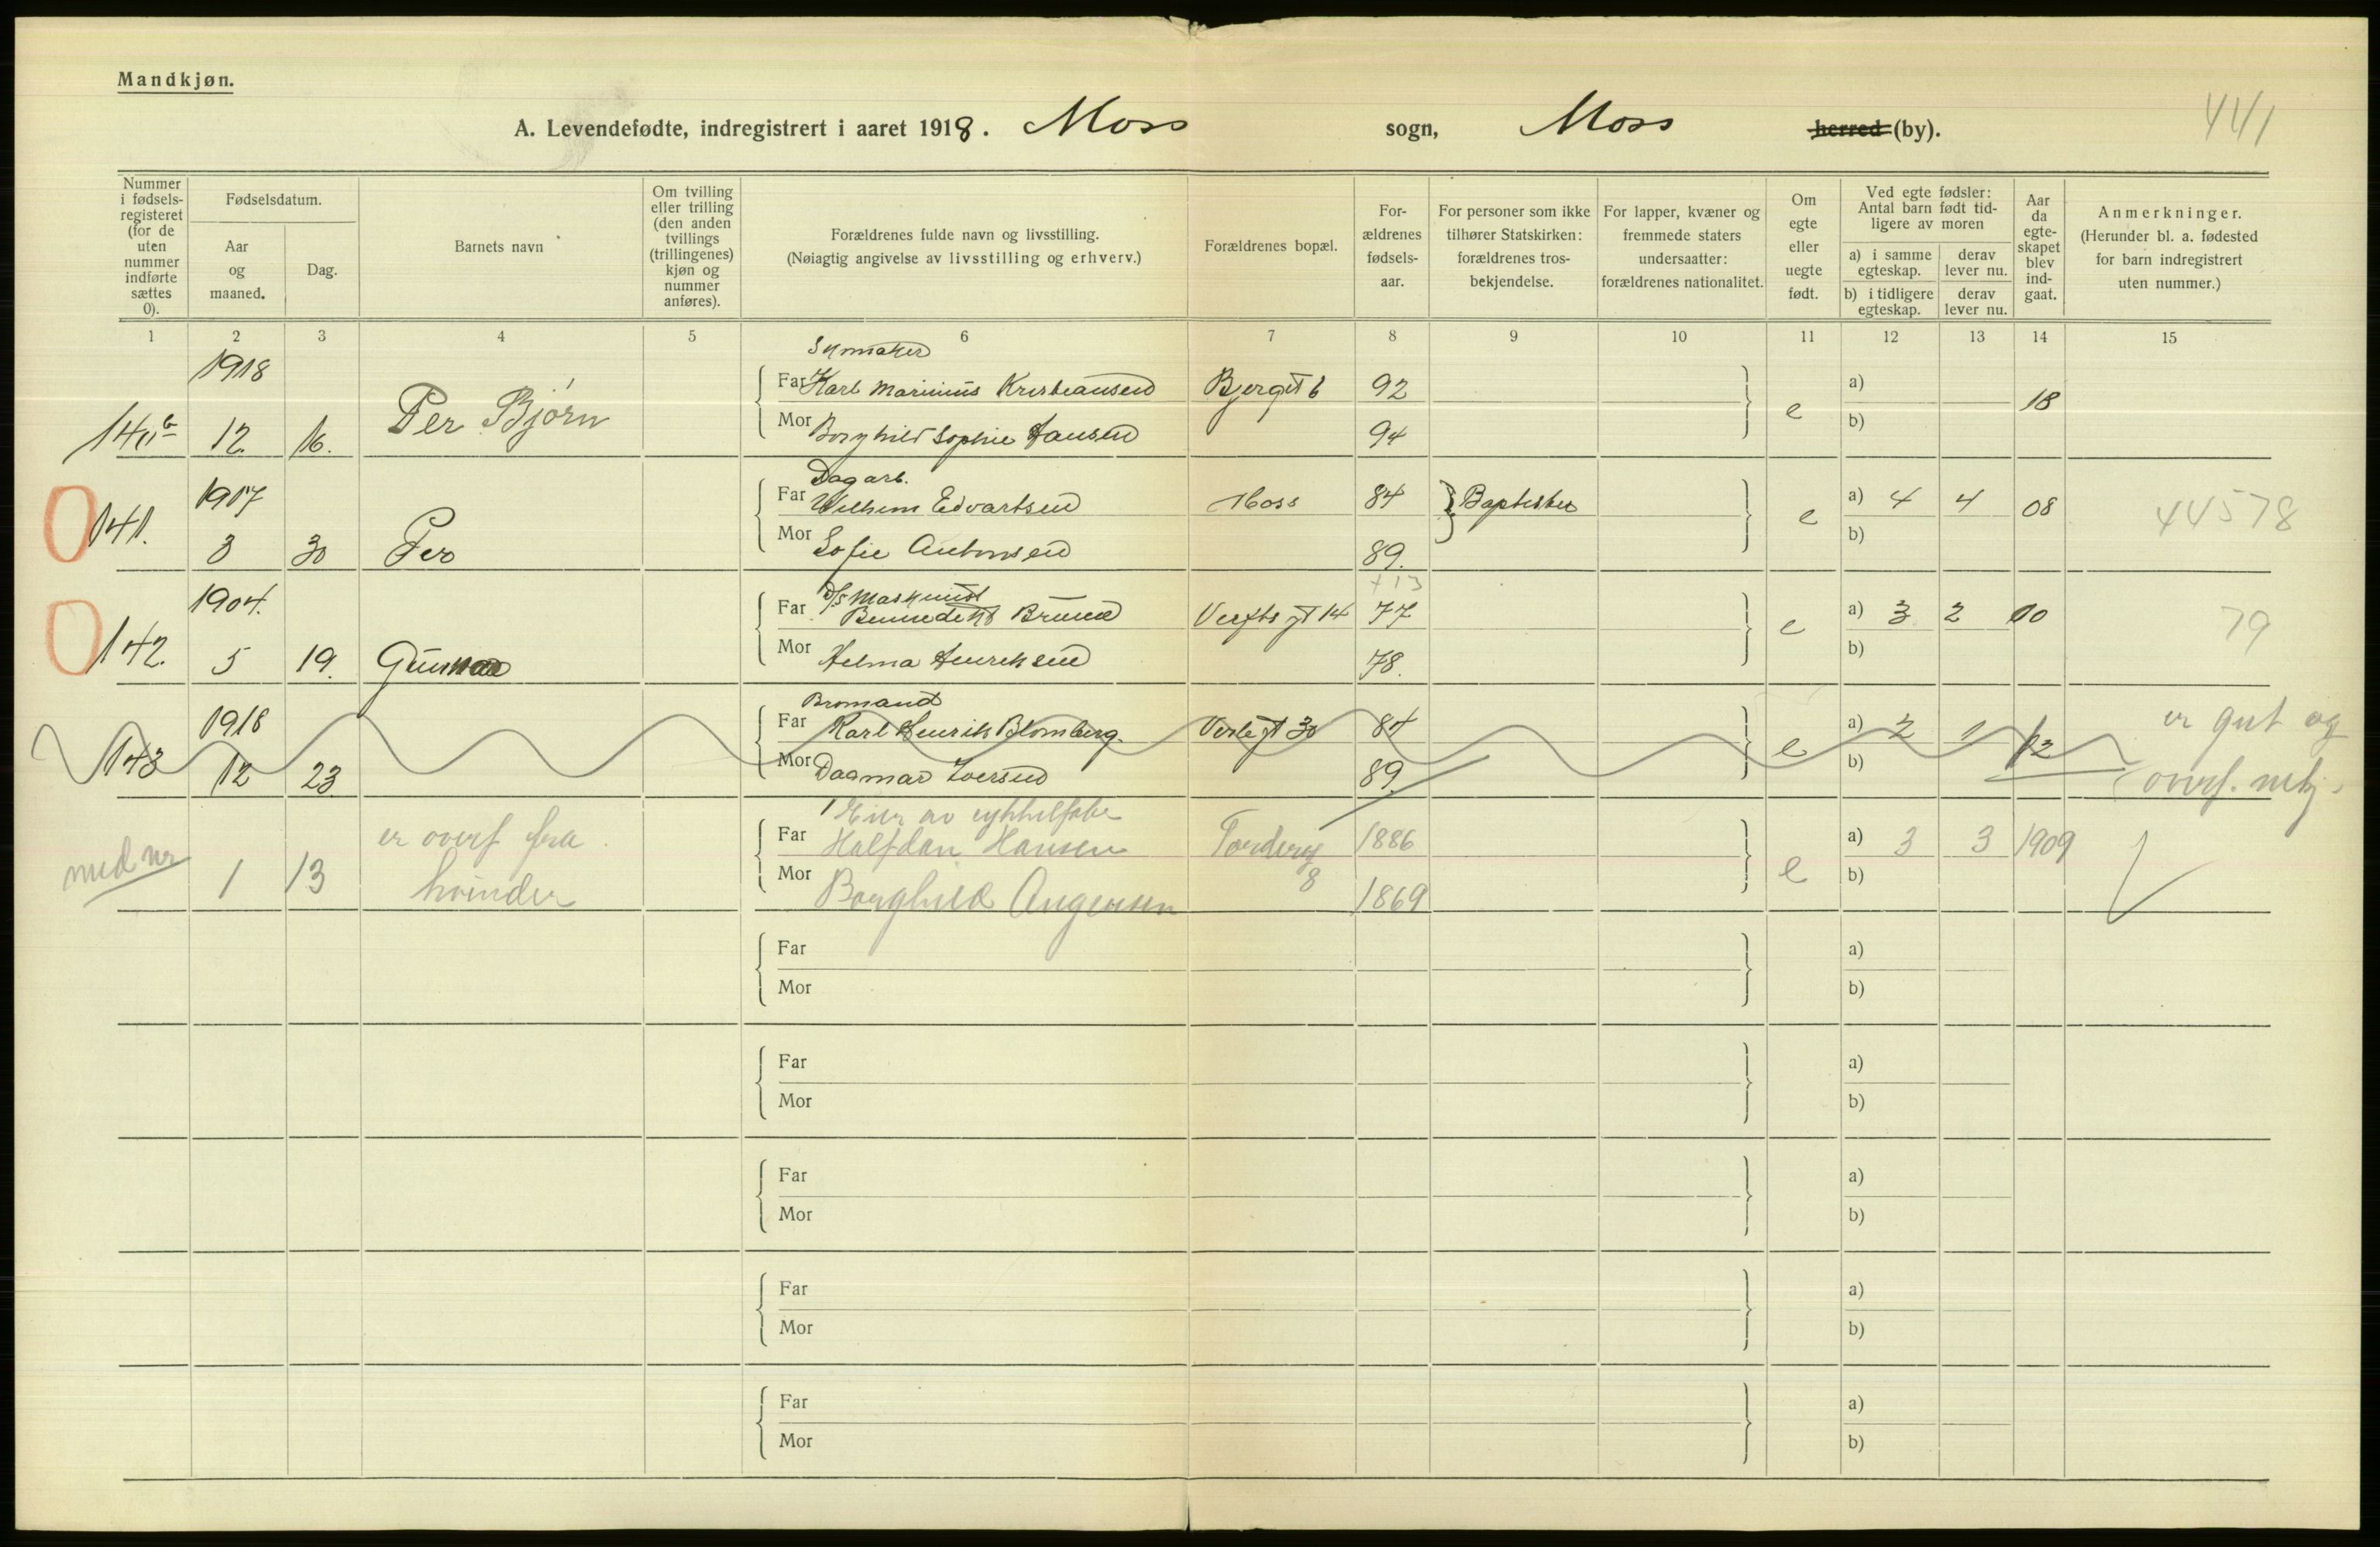 Mandkjøn.
A. Levendefødte, indregistrert i aaret 1918. Moss sogn, Moss herred (by).
441
Nummer i fødsels-registeret (for de uten nummer indførte sættes 0).
Fødselsdatum.
Aar og maaned.
Dag.
Barnets navn
Om tvilling eller trilling (den anden tvillings (trillingenes) kjøn og nummer anføres).
Forældrenes fulde navn og livsstilling.
(Nøiagtig angivelse av livsstilling og erhverv.)
Forældrenes bopæl.
For-ældrenes fødsels-aar.
For personer som ikke tilhører Statskirken: forældrenes tros-bekjendelse.
For lapper, kvæner og fremmede staters undersaatter: forældrenes nationalitet.
Om egte eller uegte født.
Ved egte fødsler: Antal barn født tid-ligere av moren
a) i samme egteskap.
derav lever nu.
b) i tidligere egteskap.
derav lever nu.
Aar da egte-skapet blev ind-gaat.
Anmerkninger.
(Herunder bl. a. fødested for barn indregistrert uten nummer.)
1 2 3 4 5 6 7 8 9 10 11 12 13 14 15
1918 Skomaker
Far Karl Marinius Kristiansen Bjerget 6 92 a)
140b 12. 16. Per Bjørn e 18
Mor Borghild Sophie Hansen 94 b)
1917 Dagarb.
Far Vilhelm Edvartsen Moss 84 Baptister a) 4 4 08 44578
0 141. 3 30 Per e
Mor Sofie Antonsen 89. b)
1904. D/S Maskinist +13
Far Bennedikt Bruun Verftsgt 14 77 a) 3 2 00 79
0 142. 5 19. Gunnar e
Mor Helma Henriksen 78. b)
1918 Bromand
Far Karl Henrik Blomberg. Verlegt 30 84 a) 2 1 12 er gut og
143 12 23 e
Mor Dagmar Iversen 89. b) overf. mkj.
Eier av sykkelfabr
er overf fra Far Halfdan Hansen Torderg 8 1886 a) 3 3 1909
med nr 1 13 kvinder e
Mor Borghild 1869 b)
Far a)
Mor b)
Far a)
Mor b)
Far a)
Mor b)
Far a)
Mor b)
Far a)
Mor b)